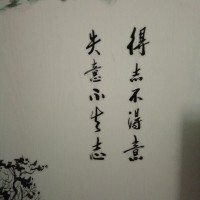 得志不得意
失意不失志